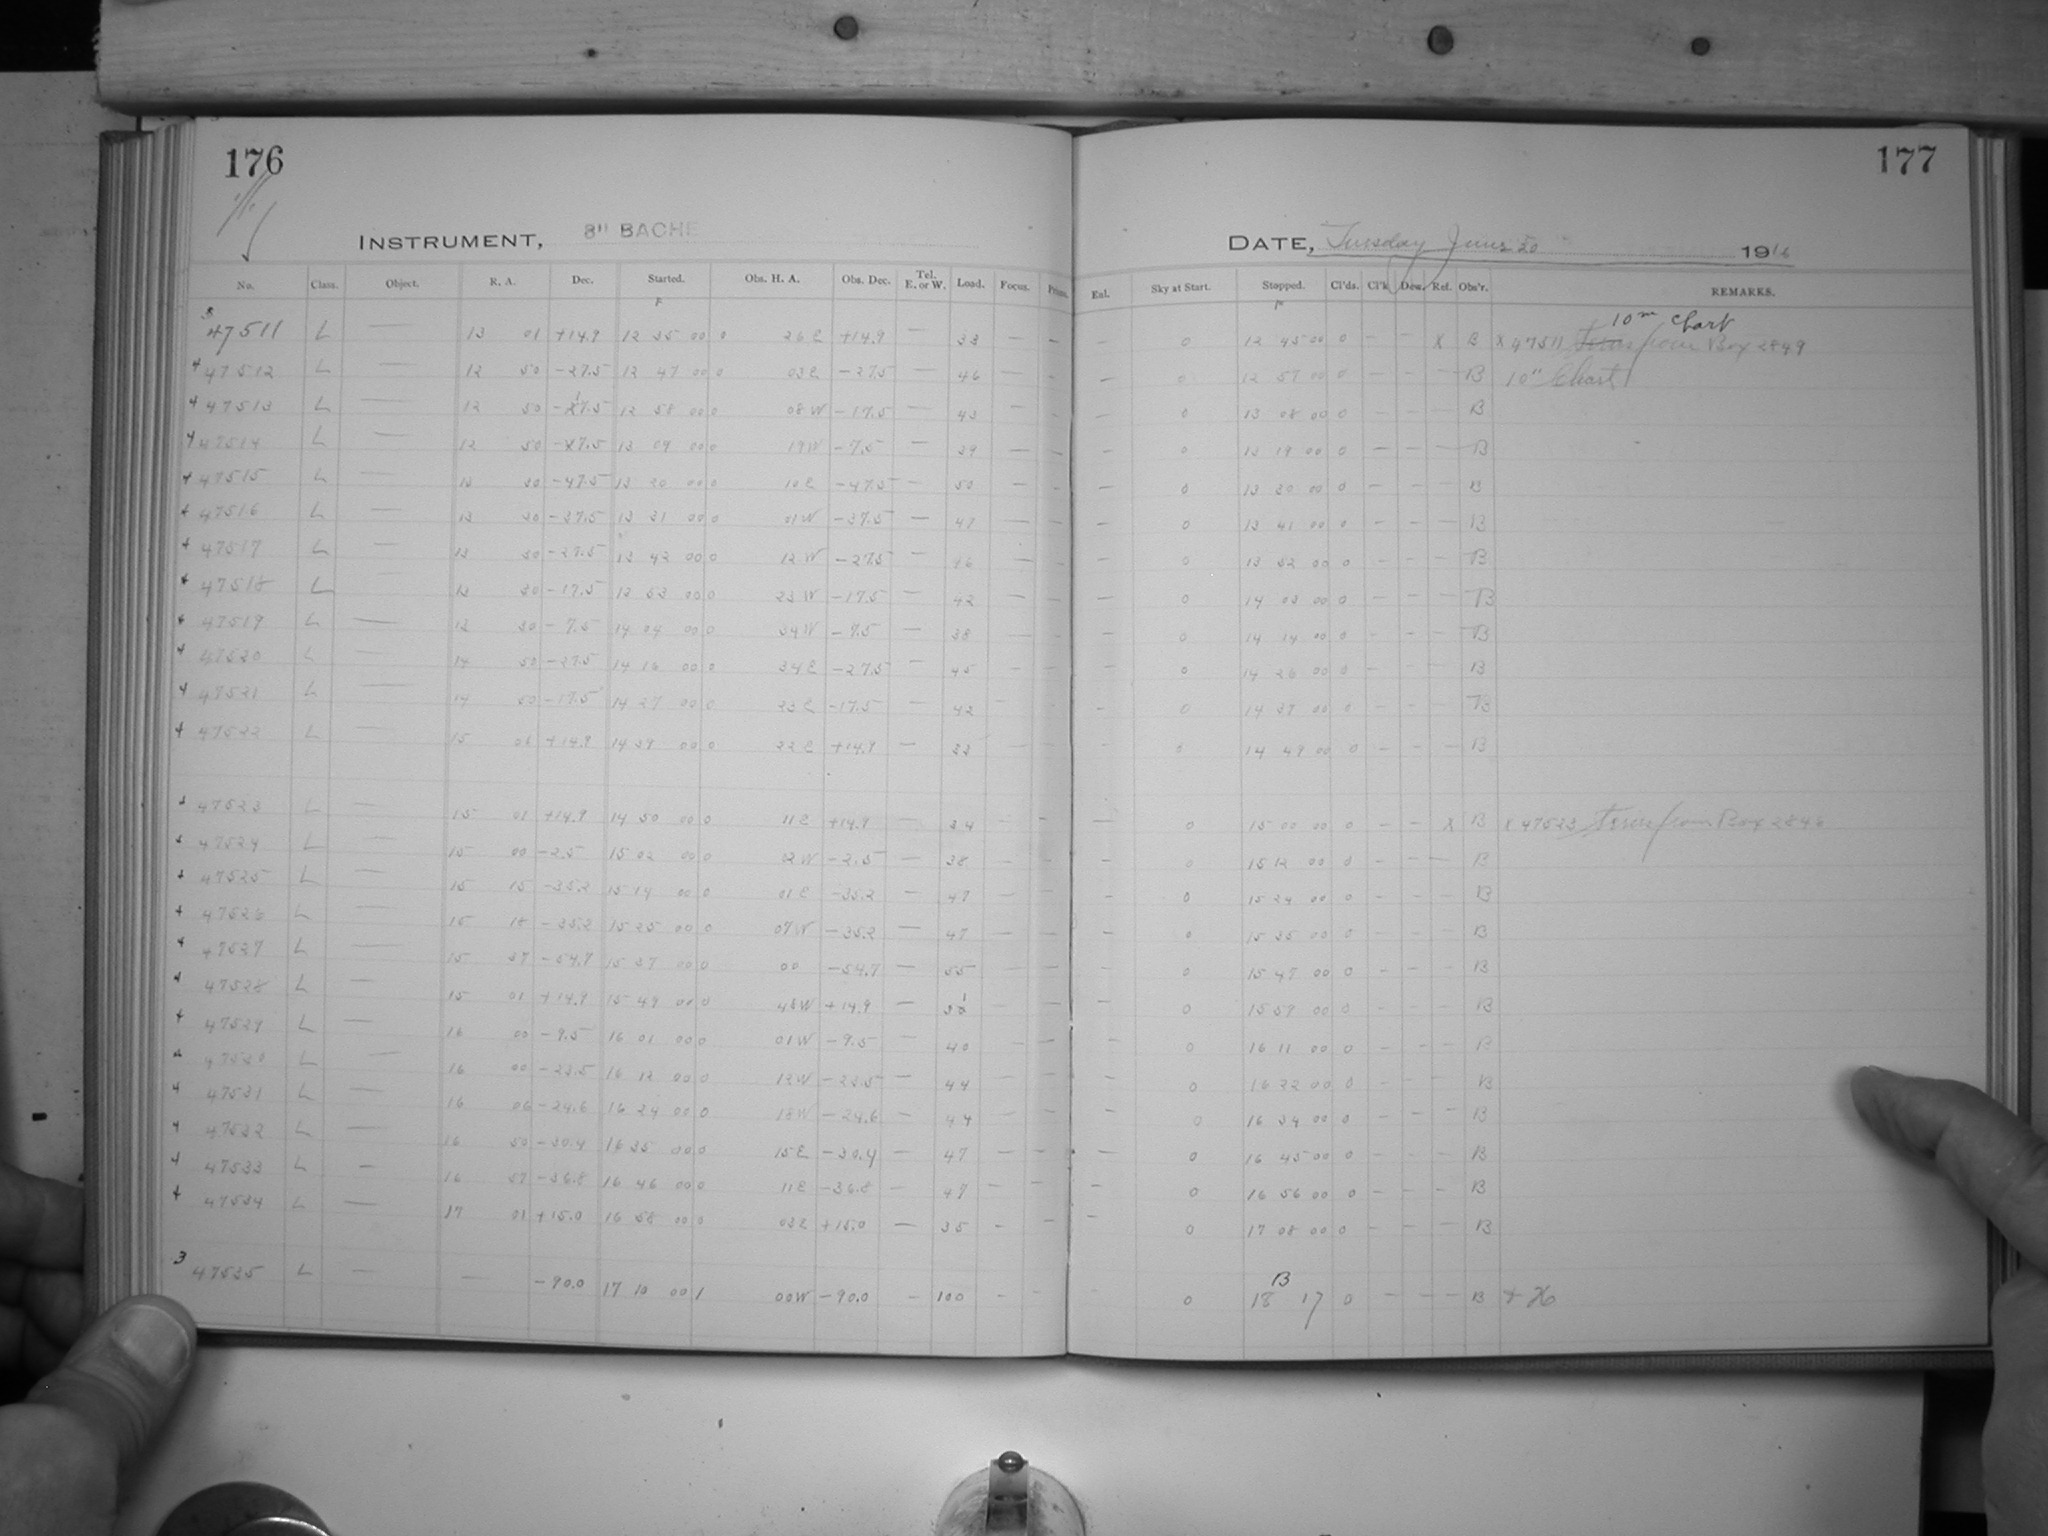 176
177
INSTRUMENT, 8" BACHE
DATE, Tuesday June 20 1916
No. Class. Object. R. A. Dec. Started. Obs. H. A. Obs. Dec. Tel. E. or W. Load. Focus. Enl. Sky at Start. Stopped. Cl'ds. Dew. Ref. Obs'r. REMARKS.
10m Chart
47511 L — 13 01 +14.9 12 35 00 0 26 E +14.9 — 33 — — — 0 12 45 00 0 — — X B X 47511 from Box 2849
47512 L — 12 50 -27.5 12 47 00 0 03 E -27.5 — 46 — — — 0 12 57 00 0 — — — B 10" Chart
47513 L — 12 50 -17.5 12 58 00 0 08 W -17.5 — 43 — — — 0 13 08 00 0 — — — B
47514 L — 12 50 -7.5 13 09 00 0 19 W -7.5 — 39 — — — 0 13 19 00 0 — — — B
47515 L — 13 30 -47.5 13 20 00 0 10 E -47.5 — 50 — — — 0 13 30 00 0 — — — B
47516 L — 13 30 -37.5 13 31 00 0 01 W -37.5 — 47 — — — 0 13 41 00 0 — — — B
47517 L — 13 30 -27.5 13 42 00 0 12 W -27.5 — 46 — — — 0 13 52 00 0 — — — B
47518 L — 13 30 -17.5 13 53 00 0 23 W -17.5 — 42 — — — 0 14 03 00 0 — — — B
47519 L — 13 30 -7.5 14 04 00 0 34 W -7.5 — 38 — — — 0 14 14 00 0 — — — B
47520 L — 14 50 -27.5 14 16 00 0 34 E -27.5 — 45 — — — 0 14 26 00 0 — — — B
47521 L — 14 50 -17.5 14 27 00 0 23 E -17.5 — 42 — — — 0 14 37 00 0 — — — B
47522 L — 15 01 +14.9 14 39 00 0 22 E +14.9 — 33 — — — 0 14 49 00 0 — — — B
47523 L — 15 01 +14.9 14 50 00 0 11 E +14.9 — 34 — — — 0 15 00 00 0 — — X B X 47523 from Box 2846
47524 L — 15 00 -2.5 15 02 00 0 02 W -2.5 — 38 — — — 0 15 12 00 0 — — — B
47525 L — 15 15 -35.2 15 14 00 0 01 E -35.2 — 47 — — — 0 15 24 00 0 — — — B
47526 L — 15 18 -35.2 15 25 00 0 07 W -35.2 — 47 — — — 0 15 35 00 0 — — — B
47527 L — 15 37 -54.7 15 37 00 0 00 -54.7 — 55 — — — 0 15 47 00 0 — — — B
47528 L — 15 01 +14.9 15 49 00 0 48 W +14.9 — 31 — — — 0 15 59 00 0 — — — B
47529 L — 16 00 -9.5 16 01 00 0 01 W -9.5 — 40 — — — 0 16 11 00 0 — — — B
47530 L — 16 00 -23.5 16 12 00 0 12 W -23.5 — 44 — — — 0 16 22 00 0 — — — B
47531 L — 16 06 -24.6 16 24 00 0 18 W -24.6 — 44 — — — 0 16 34 00 0 — — — B
47532 L — 16 50 -30.4 16 35 00 0 15 E -30.4 — 47 — — — 0 16 45 00 0 — — — B
47533 L — 16 57 -36.8 16 46 00 0 11 E -36.8 47 — — — 0 16 56 00 0 — — — B
47534 L — 17 01 +15.0 16 58 00 0 03 E +15.0 — 35 — — — 0 17 08 00 0 — — — B
47535 L — — -90.0 17 10 00 1 00 W -90.0 — 100 — — — 0 18 17 0 — — — B